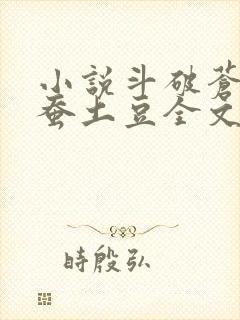 小說斗破蒼
蚕土豆全文
時殷弘